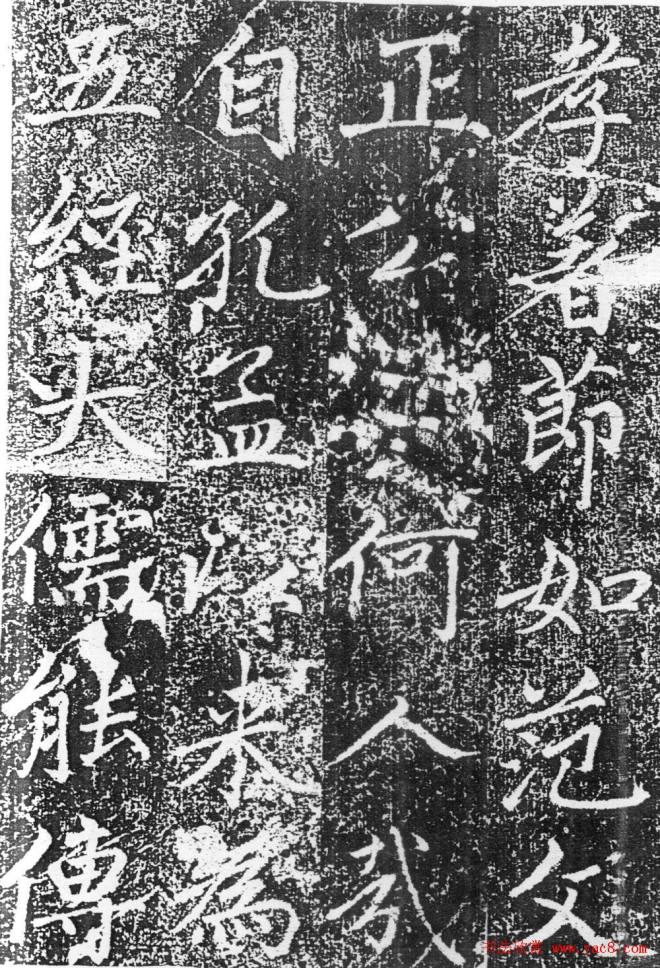 孝著節如范文
正公何人哉
自孔孟以来為
五經大儒能傳
书法欣赏 www.yac8.com